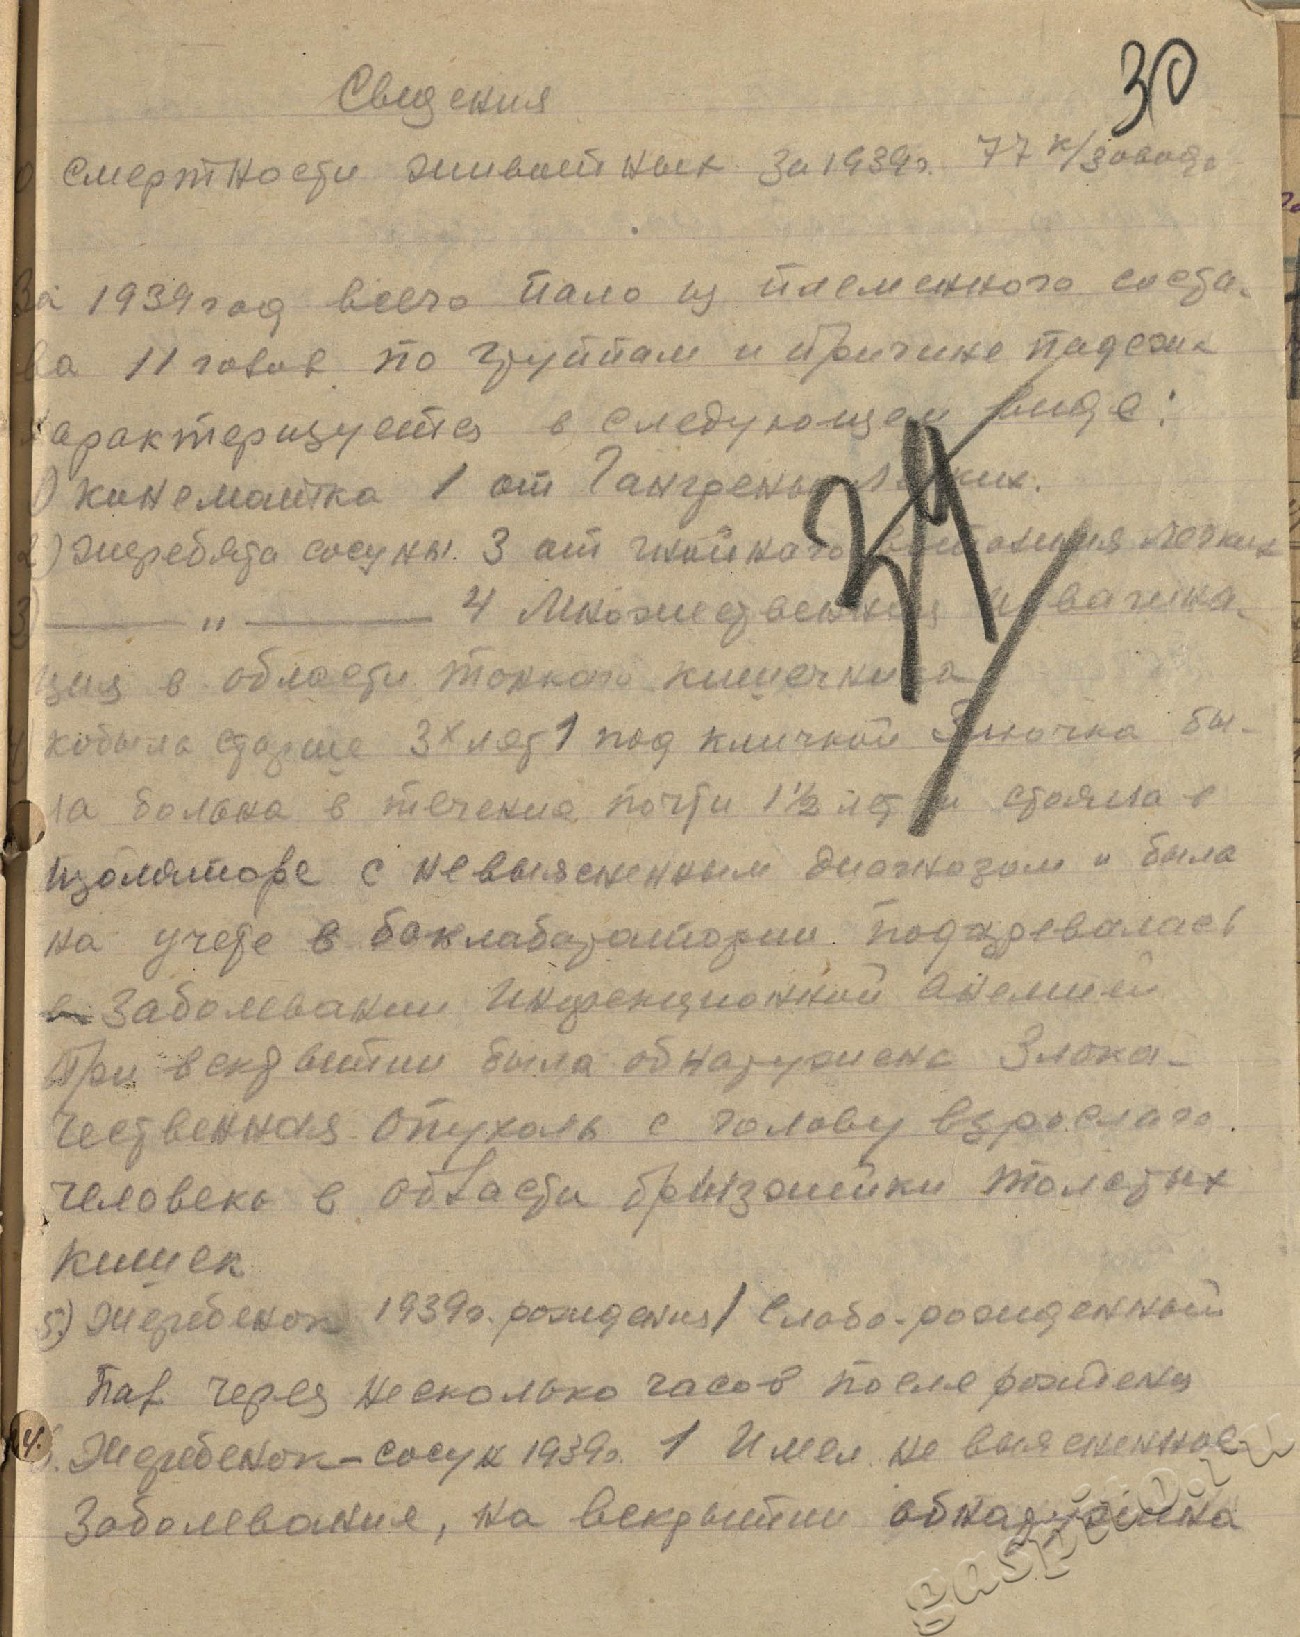 30
Сведения
о смертности животных за 1939г. 77 к/завода
За 1939 год всего пало из племенного соста-
ва 11 голов по группам и причине падежа
характеризуется в следующем виде:
1) конематка 1 от Гангрены Легких.
2) жеребята сосуны 3 от гнойного легких
3) —— „ —— 4 Множественная инвагина-
ция в области тонкого кишечника
4 кобыла старше 3х лет 1 под кличкой бы-
ла больна в течение почти 1½ лет и стояла в
изоляторе с невыясненным диагнозом и была
на учете в баклаборатории подозревалась
в Заболевании Инфекционной анемией
При вскрытии была обнаружена Злока-
чественная опухоль с голову взрослого
человека в области брызжейки толстых
кишек
5) Жеребенок 1939г. рождения 1 Слабо-рожденный
пал через несколько часов после рождения
6. Жеребенок-сосун 1939г. 1 Имел не выясненное
Заболевания, на вскрытии обнаружена
4.
gaspiro.ru